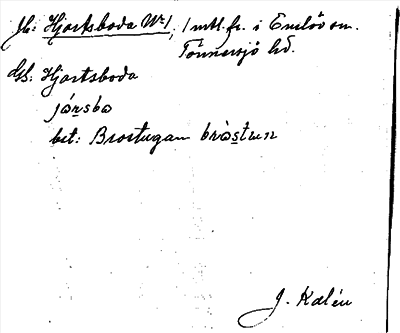 Jb: Hjortsboda Nr 1, 1 mtl. fr. i Enslöv sn.
Tönnersjö hd.
Us: Hjortsboda
jársba
bet: Brostugan bròstuın
J. Kalén